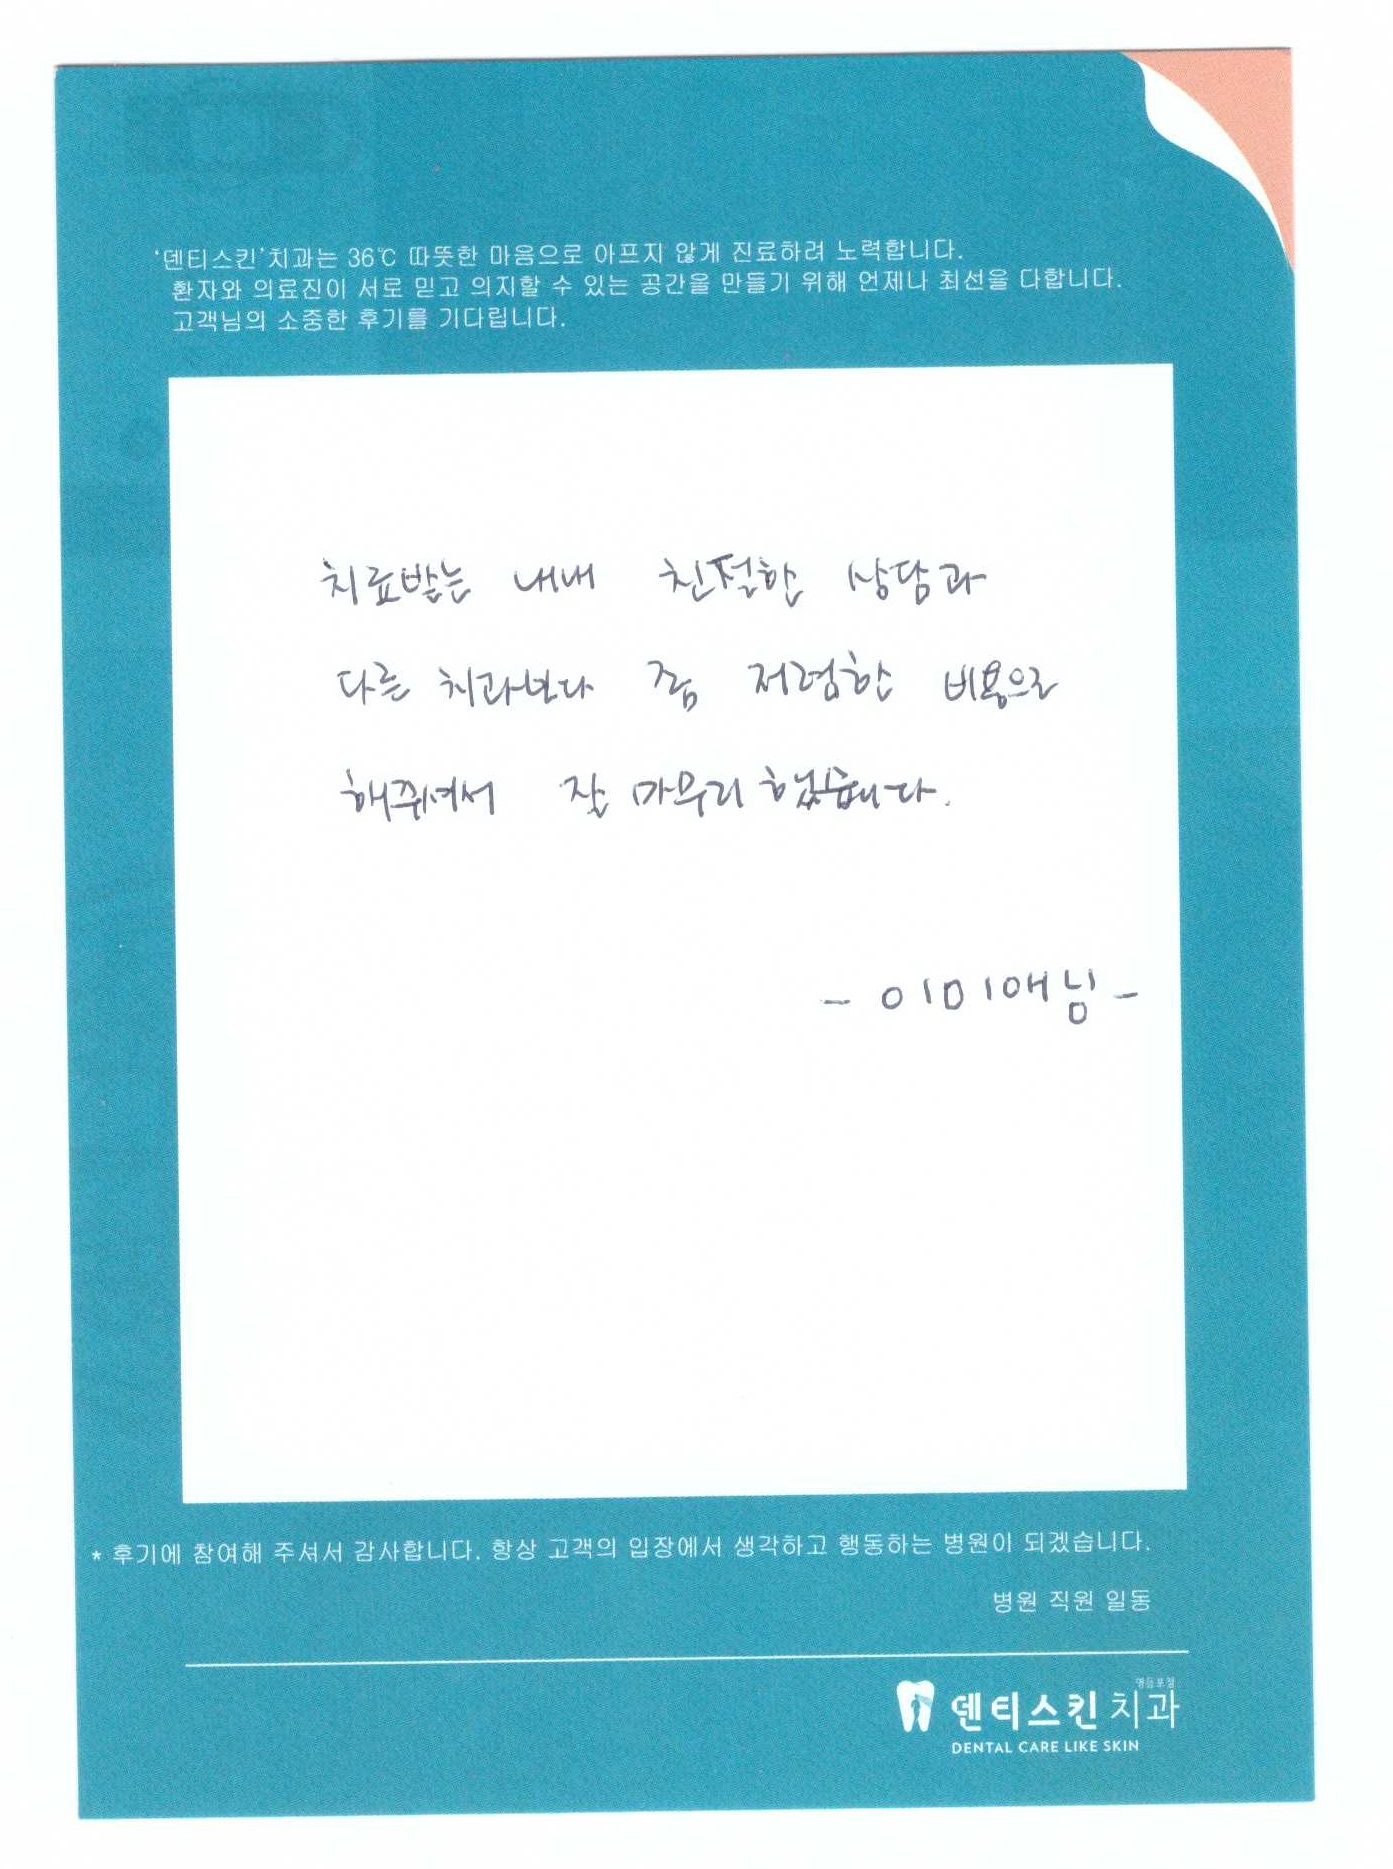 '덴티스킨'치과는 36℃ 따뜻한 마음으로 아프지 않게 진료하려 노력합니다.
환자와 의료진이 서로 믿고 의지할 수 있는 공간을 만들기 위해 언제나 최선을 다합니다.
고객님의 소중한 후기를 기다립니다.
치료받는 내내 친절한 상담과
다른 치과보다 좀 저렴한 비용으로
해줘여서 잘 마무리 했습니다.
- 이미애님 -
* 후기에 참여해 주셔서 감사합니다. 항상 고객의 입장에서 생각하고 행동하는 병원이 되겠습니다.
병원 직원 일동
영등포점
덴티스킨치과
DENTAL CARE LIKE SKIN